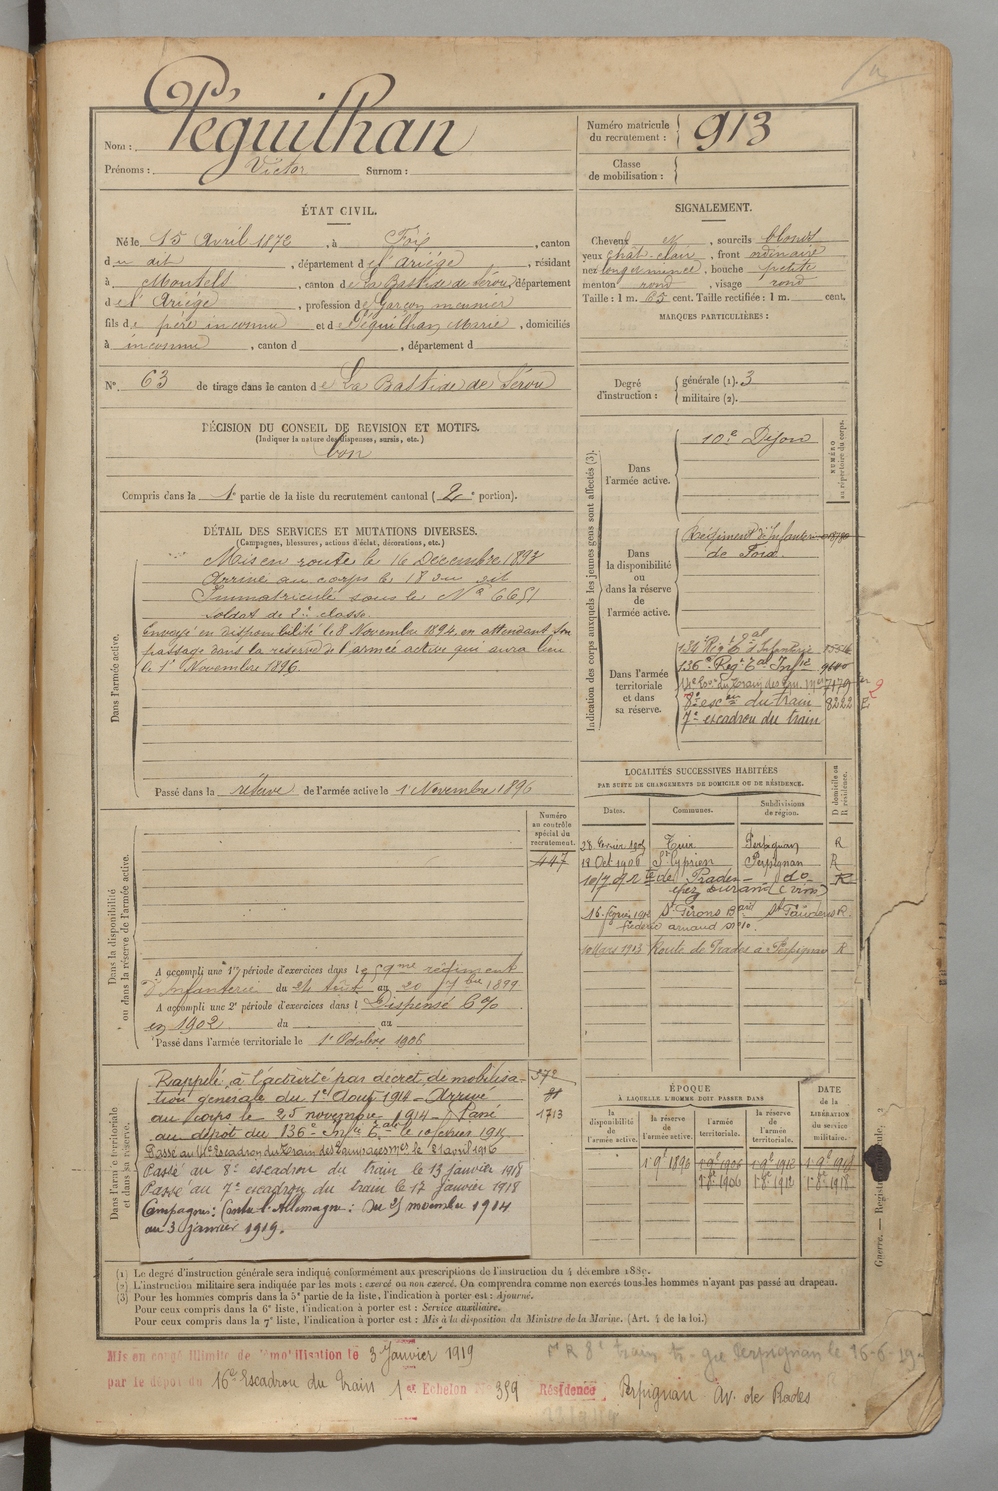 Nom : Péguilhan
Prénoms : Victor Surnom :
Numéro matricule du recrutement : 913
Classe de mobilisation :
ÉTAT CIVIL.
Né le 15 Avril 1872, à Foix, canton
du dit, département de l'Ariége, résidant
à Montels, canton de La Bastide de Sérou département
de l'Ariége, profession de Garçon meunier
fils de père inconnu et de Péguilhan Marie, domiciliés
à inconnu, canton d , département d
N° 63 de tirage dans le canton de La Bastide de Sérou
SIGNALEMENT.
Cheveux et, sourcils blonds
yeux chât. clair, front ordinaire
nez long et mince, bouche petite
menton rond, visage rond
Taille : 1 m. 65 cent. Taille rectifiée : 1 m. cent.
MARQUES PARTICULIÈRES :
Degré d'instruction : générale (1). 3
militaire (2).
DÉCISION DU CONSEIL DE REVISION ET MOTIFS.
(Indiquer la nature des dispenses, sursis, etc.)
bon
Compris dans la 1e partie de la liste du recrutement cantonal (2e portion).
DÉTAIL DES SERVICES ET MUTATIONS DIVERSES.
(Campagnes, blessures, actions d'éclat, décorations, etc.)
Dans l'armée active.
Mis en route le 16 Décembre 1893
Arrivé au corps le 18 du
Immatriculé sous le N° 6651
Soldat de 2e classe.
Envoyé en disponibilité le 8 Novembre 1894, en attendant son
passage dans la réserve de l'armée active qui aura lieu
le 1er Novembre 1896
Passé dans la réserve de l'armée active le 1er Novembre 1896
Indication des corps auxquels les jeunes gens sont affectés (3).
NUMÉRO au répertoire du corps.
Dans l'armée active.
10e Dijon
Dans la disponibilité ou dans la réserve de l'armée active.
Régiment d'Infanterie
de Foix
Dans l'armée territoriale et dans sa réserve.
136 Rég t al d'Infanterie
136e Régt Tal Infie 9640
7179
8e escon du train 8222
7e escadron du train
LOCALITÉS SUCCESSIVES HABITÉES
PAR SUITE DE CHANGEMENTS DE DOMICILE OU DE RÉSIDENCE.
Dates. Communes. Subdivisions de région. D domicile ou R résidence.
28 février 1905 Thuir Perpignan R
18 Oct 1906 St Cyprien Perpignan R
rte de Prades do R
chez Durand
16 février 1912 St Girons Bard St Gaudens R
Frédéric Arnaud n° 10.
10 Mars 1913 Route de Prades a Perpignan R
Dans la disponibilité ou dans la réserve de l'armée active.
Numéro au contrôle spécial du recrutement.
447
A accompli une 1re période d'exercices dans le 59me régiment
d'Infanterie du 24 Août au 20 7bre 1899
A accompli une 2e période d'exercices dans l Dispensé 6 %
en 1902 du au
Passé dans l'armée territoriale le 1er Octobre 1906
Dans l'armée territoriale et dans sa réserve.
Rappelé à l'activité par décret de mobilisa-
tion générale du 1er Août 1914 - Arrivé
au corps le 25 novembre 1914 - Passé
au dépôt du 136e Infie Tale le 10 février 1915
Passé au 16e Escadron du Train des Equipages Mres le 21 avril 1916
Passé au 8e escadron du train le 13 janvier 1918
Passé au 7e escadron du train le 17 janvier 1918
Campagnes : Contre l'Allemagne : Du 25 novembre 1914
au 3 janvier 1919.
372
1713
ÉPOQUE
À LAQUELLE L'HOMME DOIT PASSER DANS
la disponibilité de l'armée active. la réserve de l'armée active. l'armée territoriale. la réserve de l'armée territoriale.
DATE de la LIBÉRATION du service militaire.
1 9e 1896 1 9e 1906 1 9e 1912 1 9e 1918
1 8e 1906 1 8e 1912 1 8e 1918
(1) Le degré d'instruction générale sera indiqué conformément aux prescriptions de l'instruction du 4 décembre 1889.
(2) L'instruction militaire sera indiquée par les mots : exercé ou non exercé. On comprendra comme non exercés tous les hommes n'ayant pas passé au drapeau.
(3) Pour les hommes compris dans la 5e partie de la liste, l'indication à porter est : Ajourné.
Pour ceux compris dans la 6e liste, l'indication à porter est : Service auxiliaire.
Pour ceux compris dans la 7e liste, l'indication à porter est : Mis à la disposition du Ministre de la Marine. (Art. 4 de la loi.)
Guerre. — Registre
Mis en congé illimité de démobilisation le 3 Janvier 1919
par le dépôt du 16e Escadron du Train 1er Echelon N° 359 Résidence Perpignan Av. de Prades
R 8e train Perpignan le